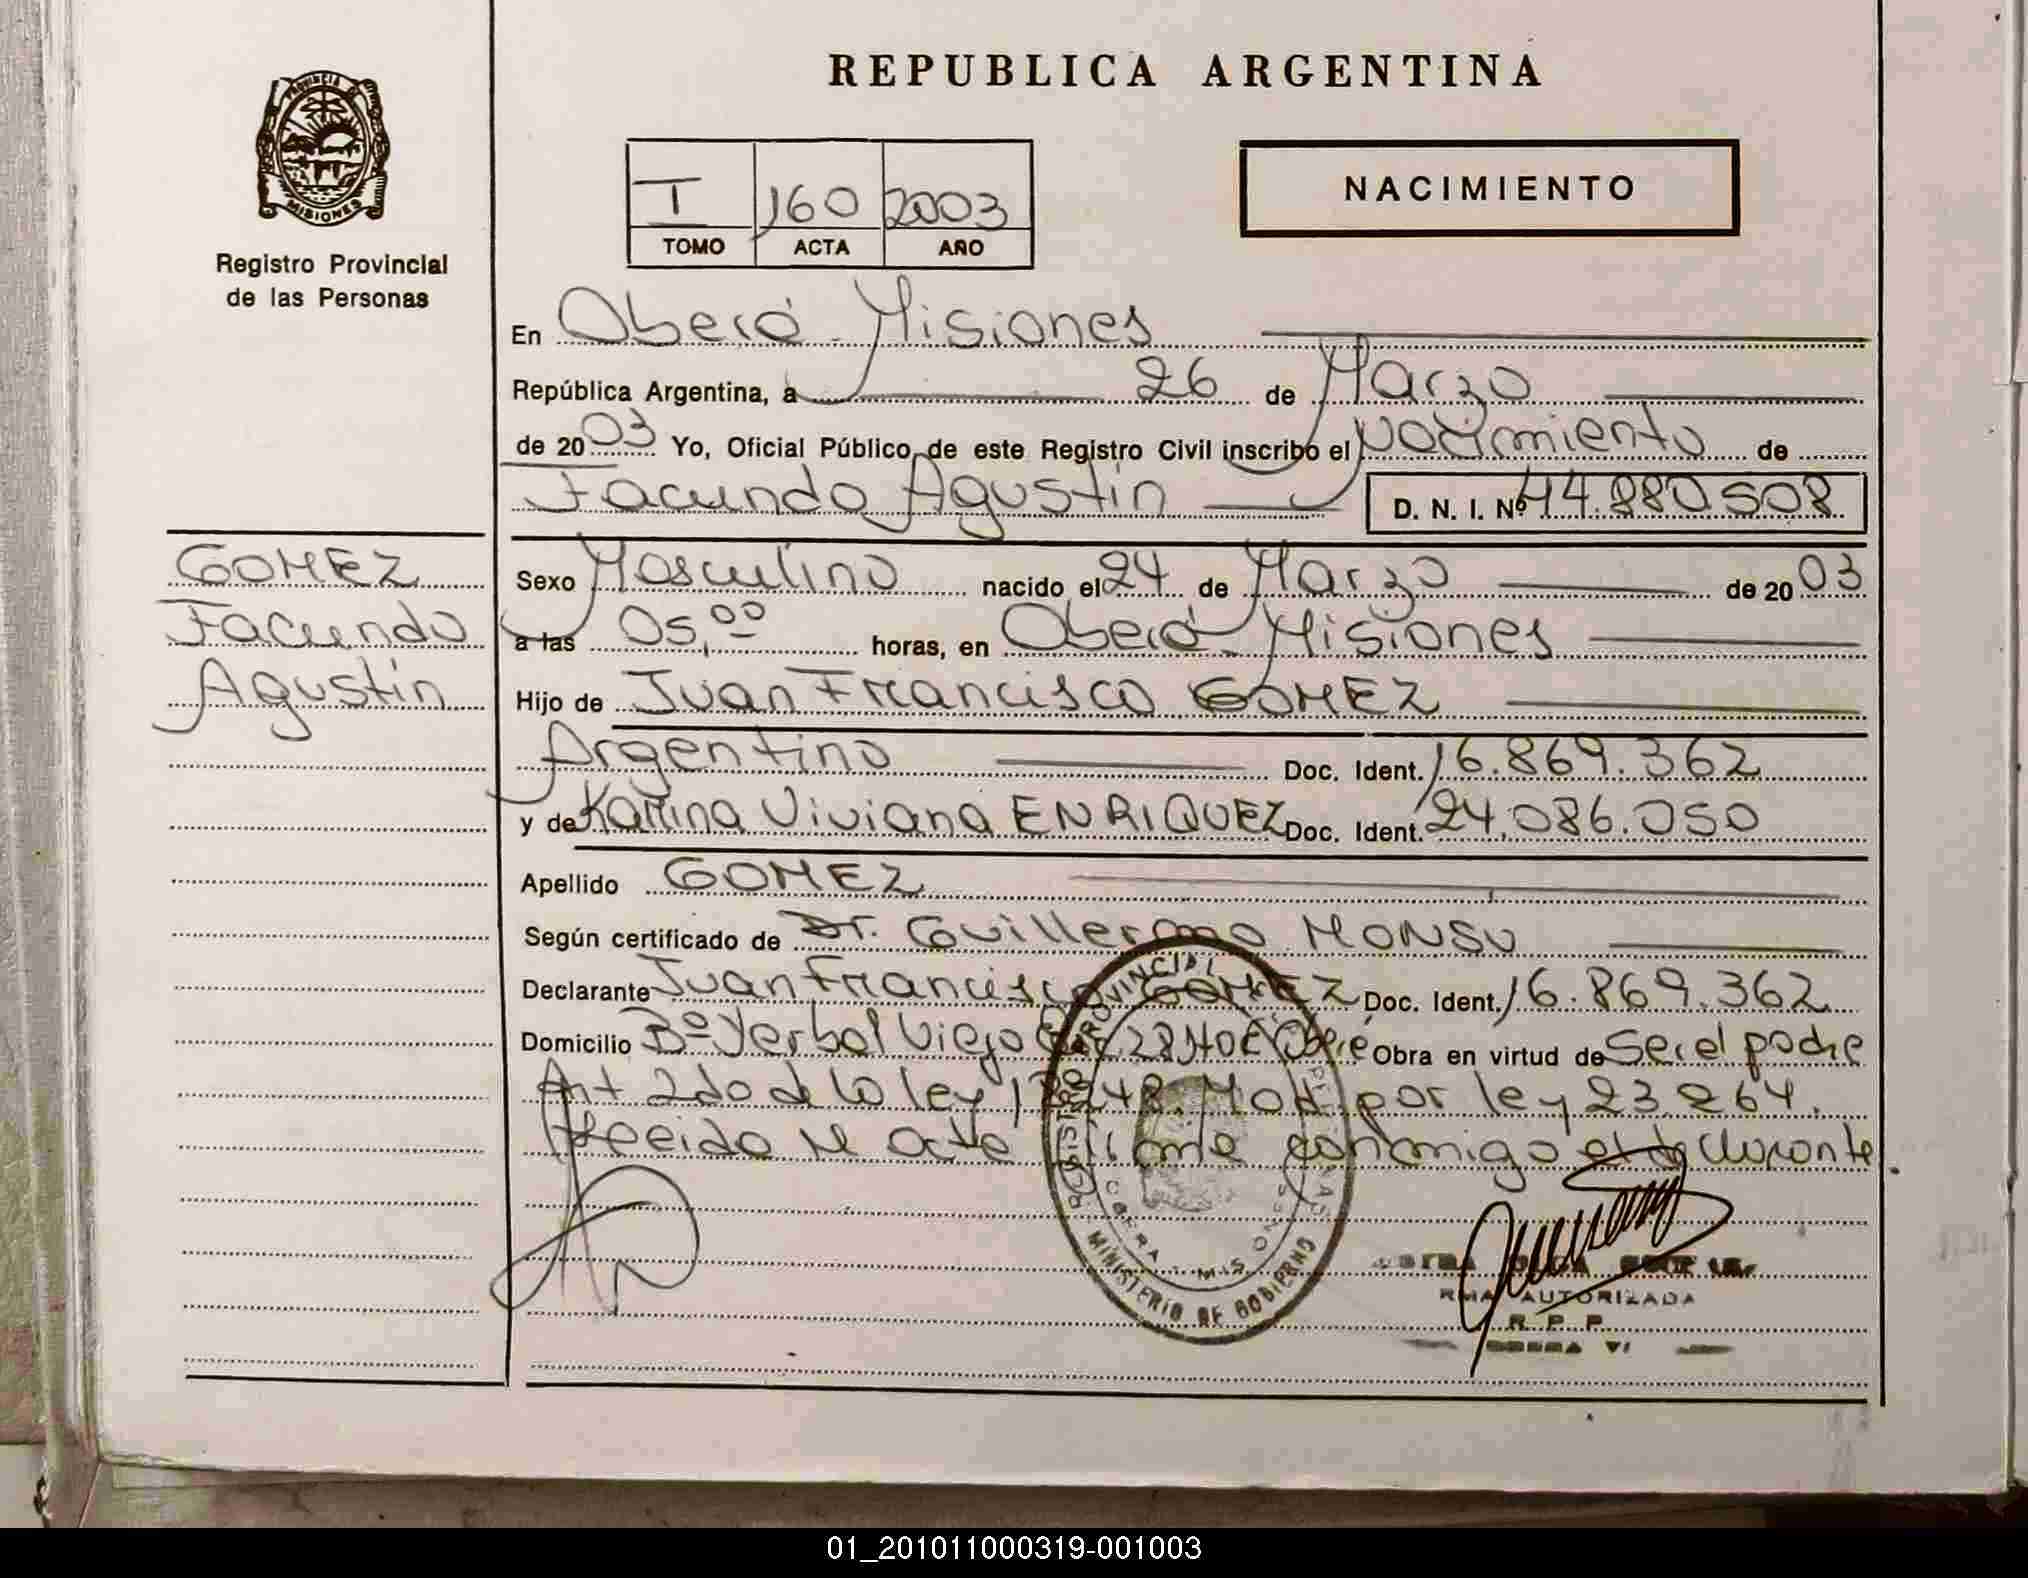 REPUBLICA ARGENTINA
PROVINCIA DE
MISIONES
Registro Provincial
de las Personas
T 160 2003
TOMO ACTA AÑO
NACIMIENTO
En Oberá - Misiones
República Argentina, a 26 de Marzo
de 2003 Yo, Oficial Público de este Registro Civil inscribo el nacimiento de
Facundo Agustín D. N. I. Nº 44.880.508
GOMEZ
Facundo
Agustín
Sexo Masculino nacido el 24 de Marzo de 2003
a las 05,00 horas, en Oberá - Misiones
Hijo de Juan Francisco GOMEZ
Argentino Doc. Ident. 16.869.362
y de Karina Viviana ENRIQUEZ Doc. Ident. 24.086.050
Apellido GOMEZ
Según certificado de Dr. Guillermo MONSU
Declarante Juan Francisco GOMEZ Doc. Ident. 16.869.362
Domicilio Bº Yerbal Viejo Oberá Obra en virtud de Ser el padre
Art 2do de la ley 18248. Mod. por ley 23.264.
Leida el acta firma conmigo el declarante.
REGISTRO PROVINCIAL DE LAS PERSONAS
OBERA - MISIONES
MINISTERIO DE GOBIERNO
AUTORIZADA
R P P
01_201011000319-001003